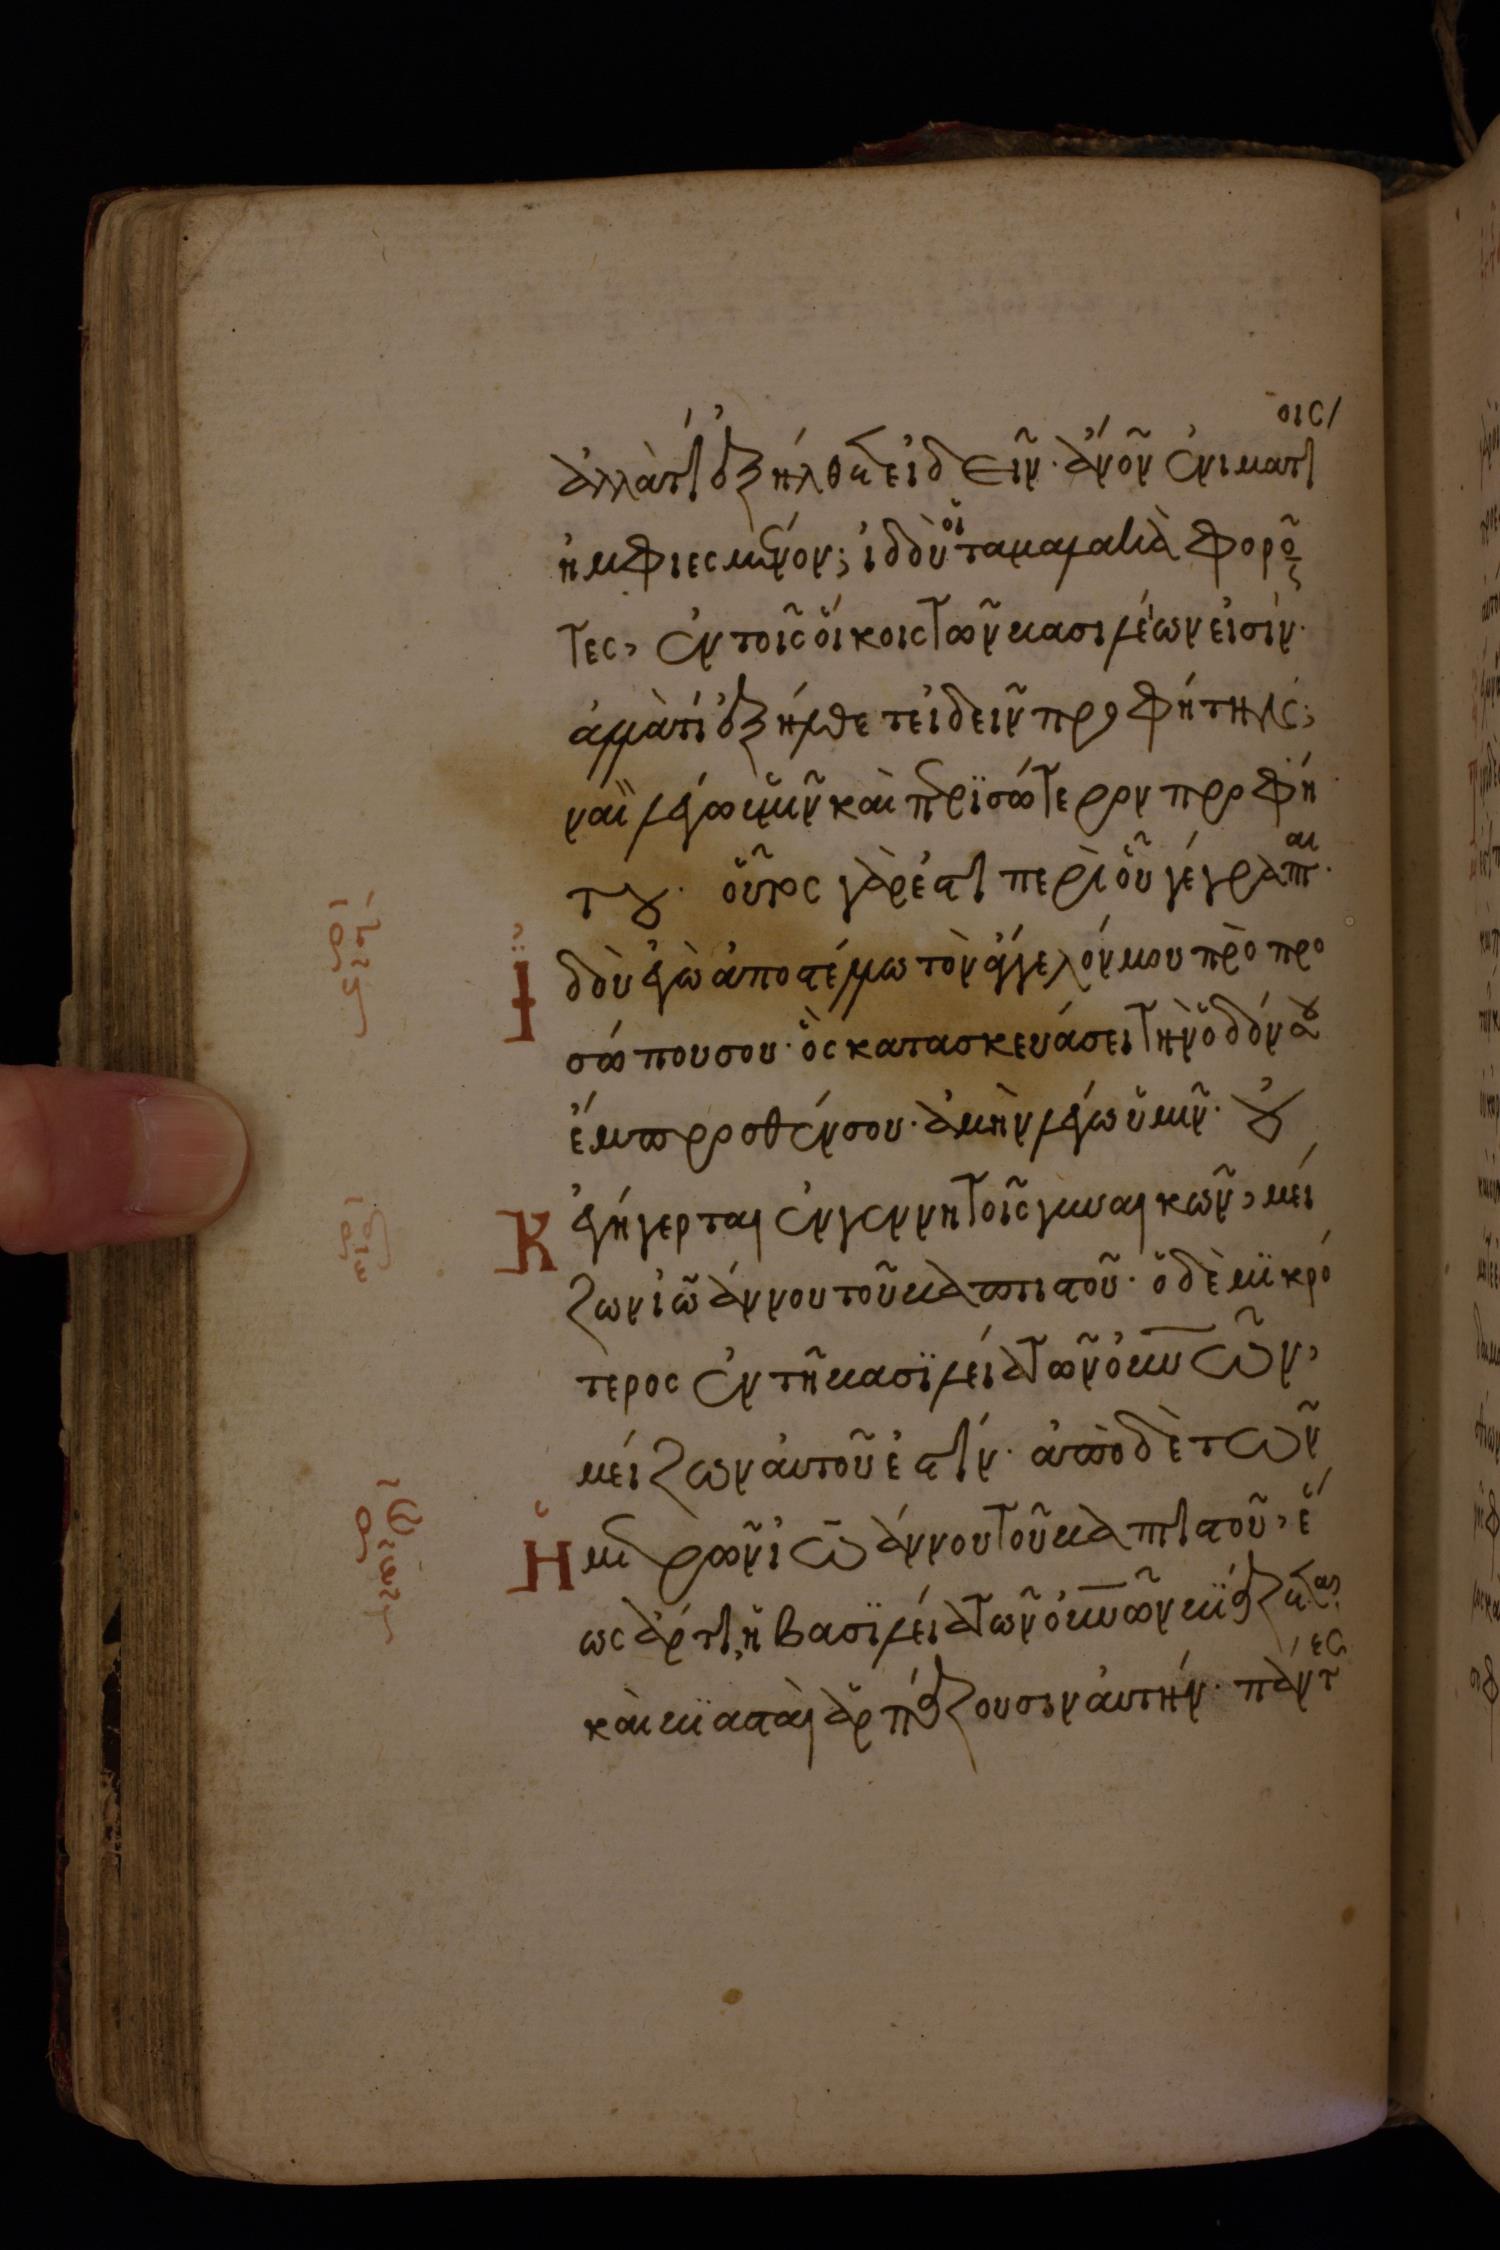 ἀλλὰ τί ἐξήλθετε ἰδεῖν· ἄνον ἐν ἱματίοις
ἠμφιεσμένον; ἰδοὺ οἱ τὰ μαλακὰ φοροῦ
τες, ἐν τοῖς οἴκοις τῶν βασιλέων εἰσίν·
ἀλλὰ τί ἐξήλθετε ἰδεῖν προφήτην;
ναὶ λέγω ὑμῖν καὶ περισσώτερον προφή
του· οὗτος γάρ ἐστι περὶ οὗ γέγραπται·
Ἰδοὺ ἐγὼ ἀποστέλλω τὸν ἄγγελόν μου πρὸ προ
σώπου σου· ὃς κατασκευάσει τὴν ὁδόν σου
ἔμπροσθέν σου· ἀμὴν λέγω ὑμῖν· οὐ
Κ ἐγήγερται ἐν γεννητοῖς γυναικῶν, μεί
ζων ἰωάννου τοῦ βαπτιστοῦ· ὁ δὲ μικρό
τερος ἐν τῇ βασιλείᾳ τῶν οὐνῶν,
μείζων αὐτοῦ ἐστίν· ἀπὸ δὲ τῶν
Ἡμερῶν ἰωάννου τοῦ βαπτιστοῦ, ἕ
ως ἄρτι, ἡ βασιλεία τῶν οὐνῶν βιάζεται,
καὶ βιασταὶ ἁρπάζουσιν αὐτήν· πάντες